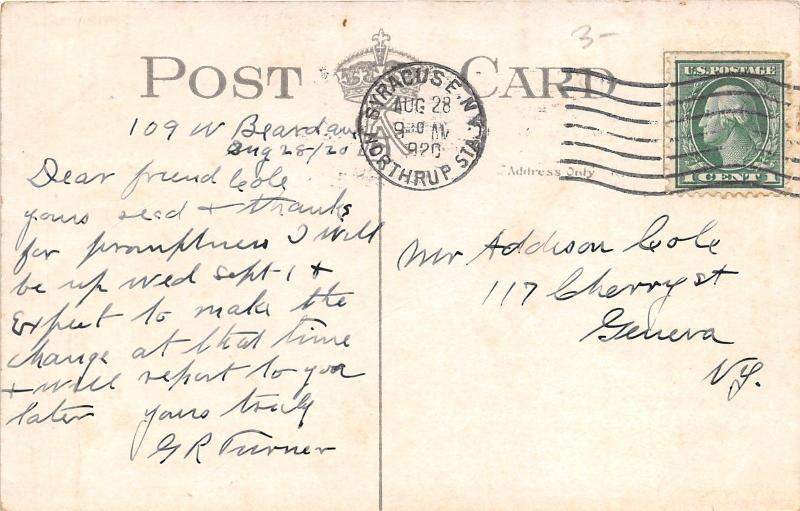 3-
POST CARD
SYRACUSE, N.Y.
AUG 28
9 30 AM
1920
NORTHRUP STA.
U.S. POSTAGE
1 CENT 1
Address Only
109 W
Aug 28/20
Dear friend Cole
yours recd + thanks
for promptness I will
be up wed sept-1 +
Expect to make the
change at that time
+ will report to you
later yours truly
G R Turner
Mr Addison Cole
117 Cherry st
Geneva
NY.